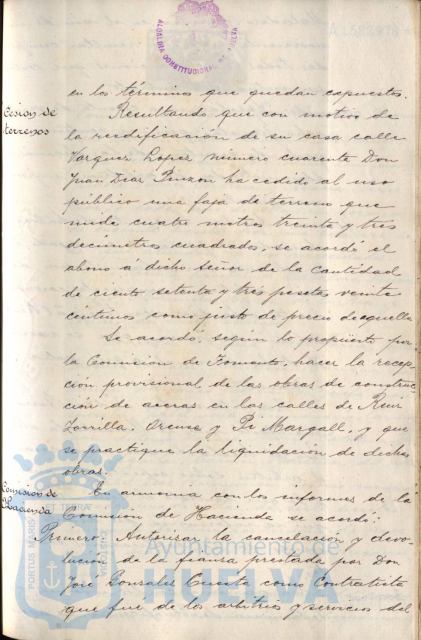 ALCALDIA CONSTITUCIONAL DE HUELVA
en los términos que quedan expuestos.
Cesion de
terrenos
Resultando que con motivo de
la reedificación de su casa calle
Vazquez Lopez número cuarenta Don
Juan Diaz Pinzon ha cedido al uso
público una faja de terreno que
mide cuatro metros treinta y tres
decimetros cuadrados, se acordó el
abono á dicho Señor de la cantidad
de ciento setenta y tres pesetas veinte
céntimos como justo de precio de aquella
Se acordó, según lo propuesto por
la Comision de Fomento, hacer la recep-
ción provisional de las obras de construc-
ción de aceras en las calles de Ruiz
Zorrilla, Orense y Pi Margall, y que
se practique la liquidación de dichas
obras.
Comision de
Hacienda
En armonia con los informes de la
Comisión de Hacienda se acordó:
Primero: Autorizar la cancelación y devo-
lucion de la fianza prestada por Don
José Gonzalez Cuesta como Contratista
que fué de los arbitrios y servicios del
PORTUS MARIS
Ayuntamiento de
HUELVA